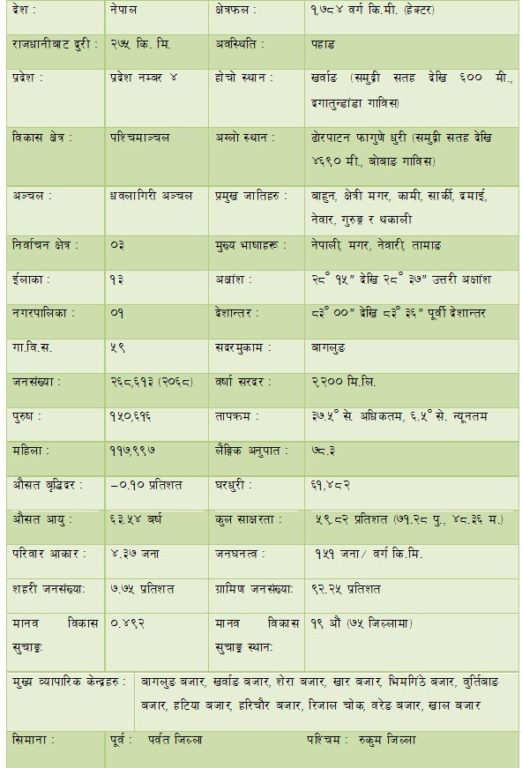 देश : नेपाल क्षेत्रफल : १,७८४ वर्ग कि.मी. (हेक्टर)
राजधानीबाट दुरी : २७५ कि. मि. अवस्थिति : पहाड
प्रदेश : प्रदेश नम्बर ४ होचो स्थान : खर्वाङ (समुद्री सतह देखि ६०० मी.,
दगातुन्डांडा गाविस)
विकास क्षेत्र : पश्चिमाञ्चल अग्लो स्थान : ढोरपाटन फागुणे धुरी (समुद्री सतह देखि
४६९० मी., बोबाङ गाविस)
अञ्चल : धवलागिरी अञ्चल प्रमुख जातिहरु : बाहुन, क्षेत्री मगर, कामी, सार्की, दमाई,
नेवार, गुरुङ्ग र थकाली
निर्वाचन क्षेत्र : ०३ मुख्य भाषाहरू : नेपाली, मगर, नेवारी, तामाङ
ईलाका : १३ अक्षांश : २८° १५" देखि २८° ३७" उत्तरी अक्षांश
नगरपालिका : ०१ देशान्तर : ८३° ००" देखि ८३° ३६" पूर्वी देशान्तर
गा.वि.स. ५९ सदरमुकाम : बागलुङ
जनसंख्या : २६८,६१३ (२०६८) वर्षा सरदर : २,२०० मि.लि.
पुरुष : १५०,६१६ तापक्रम : ३७.५° से. अधिकतम, ६.५° से. न्यूनतम
महिला : ११७,९९७ लैङ्गिक अनुपात : ७८.३
औसत बृद्धिदर : –०.१० प्रतिशत घरधुरी : ६१,४८२
औसत आयु : ६३.५४ बर्ष कुल साक्षरता : ५९.८२ प्रतिशत (७१.२८ पु., ४८.३६ म.)
परिवार आकार : ४.३७ जना जनघनत्व : १५१ जना/ वर्ग कि.मि.
शहरी जनसंख्या: ७.७५ प्रतिशत ग्रामिण जनसंख्या: ९२.२५ प्रतिशत
मानव विकास ०.४९२ मानव विकास १९ औं (७५ जिल्लामा)
सुचाङ्क: सुचाङ्क स्थान:
मुख्य व्यापारिक केन्द्रहरु : बागलुङ बजार, खर्वाङ बजार, शेरा बजार, खार बजार, भिमगिठे बजार, वुर्तिबाङ
बजार, हटिया बजार, हरिचौर बजार, रिजाल चोक, वरेङ बजार, खाल बजार
सिमाना : पूर्व : पर्वत जिल्ला पश्चिम : रुकुम जिल्ला